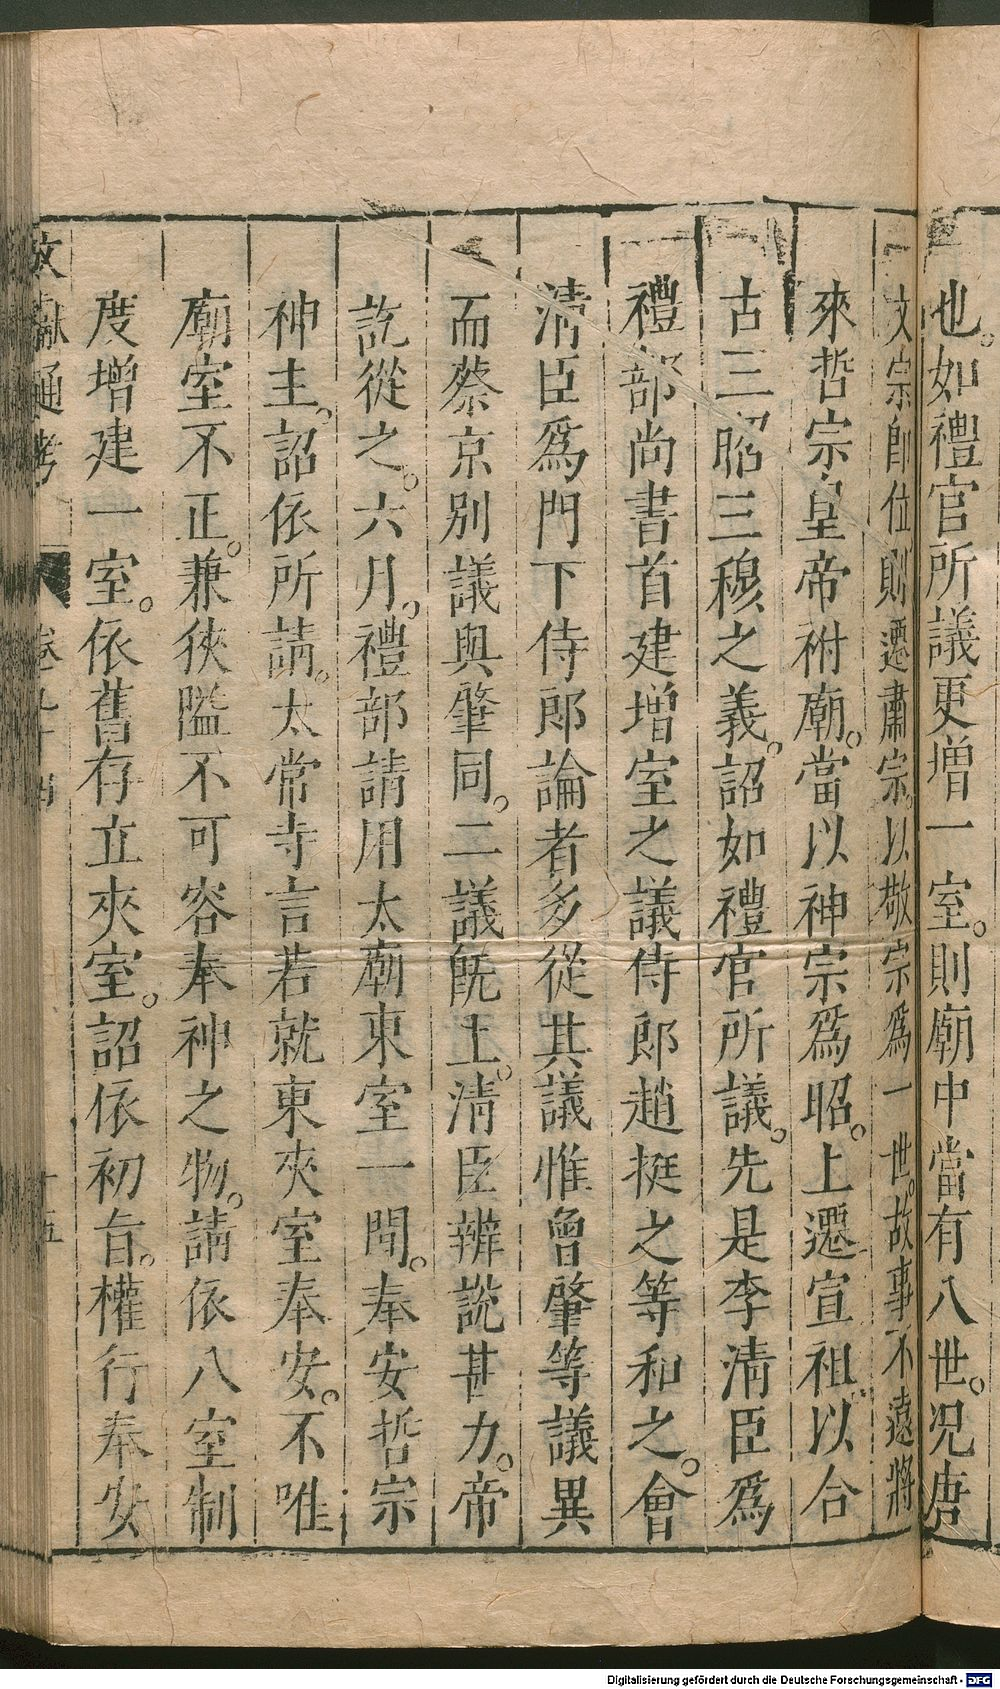 也如禮官所議更增一室則廟中當有八世况唐
文宗即位則遷肅宗以敬宗爲一世故事不遠將
來哲宗皇帝祔廟當以神宗爲昭上遷宣祖以合
古三昭三穆之義詔如禮官所議先是李清臣爲
禮部尚書首建增室之議侍郎趙挺之等和之會
清臣爲門下侍郎論者多從其議惟曾肇等議異
而蔡京別議與肇同二議旣上清臣辨說甚力帝
訖從之六月禮部請用太廟東室一間奉安哲宗
神主詔依所請太常寺言若就東夾室奉安不唯
廟室不正兼狹隘不可容奉神之物請依八室制
度增建一室依舊存立夾室詔依初旨權行奉安
文獻通考 卷九十四 十五
Digitalisierung gefördert durch die Deutsche Forschungsgemeinschaft - DFG